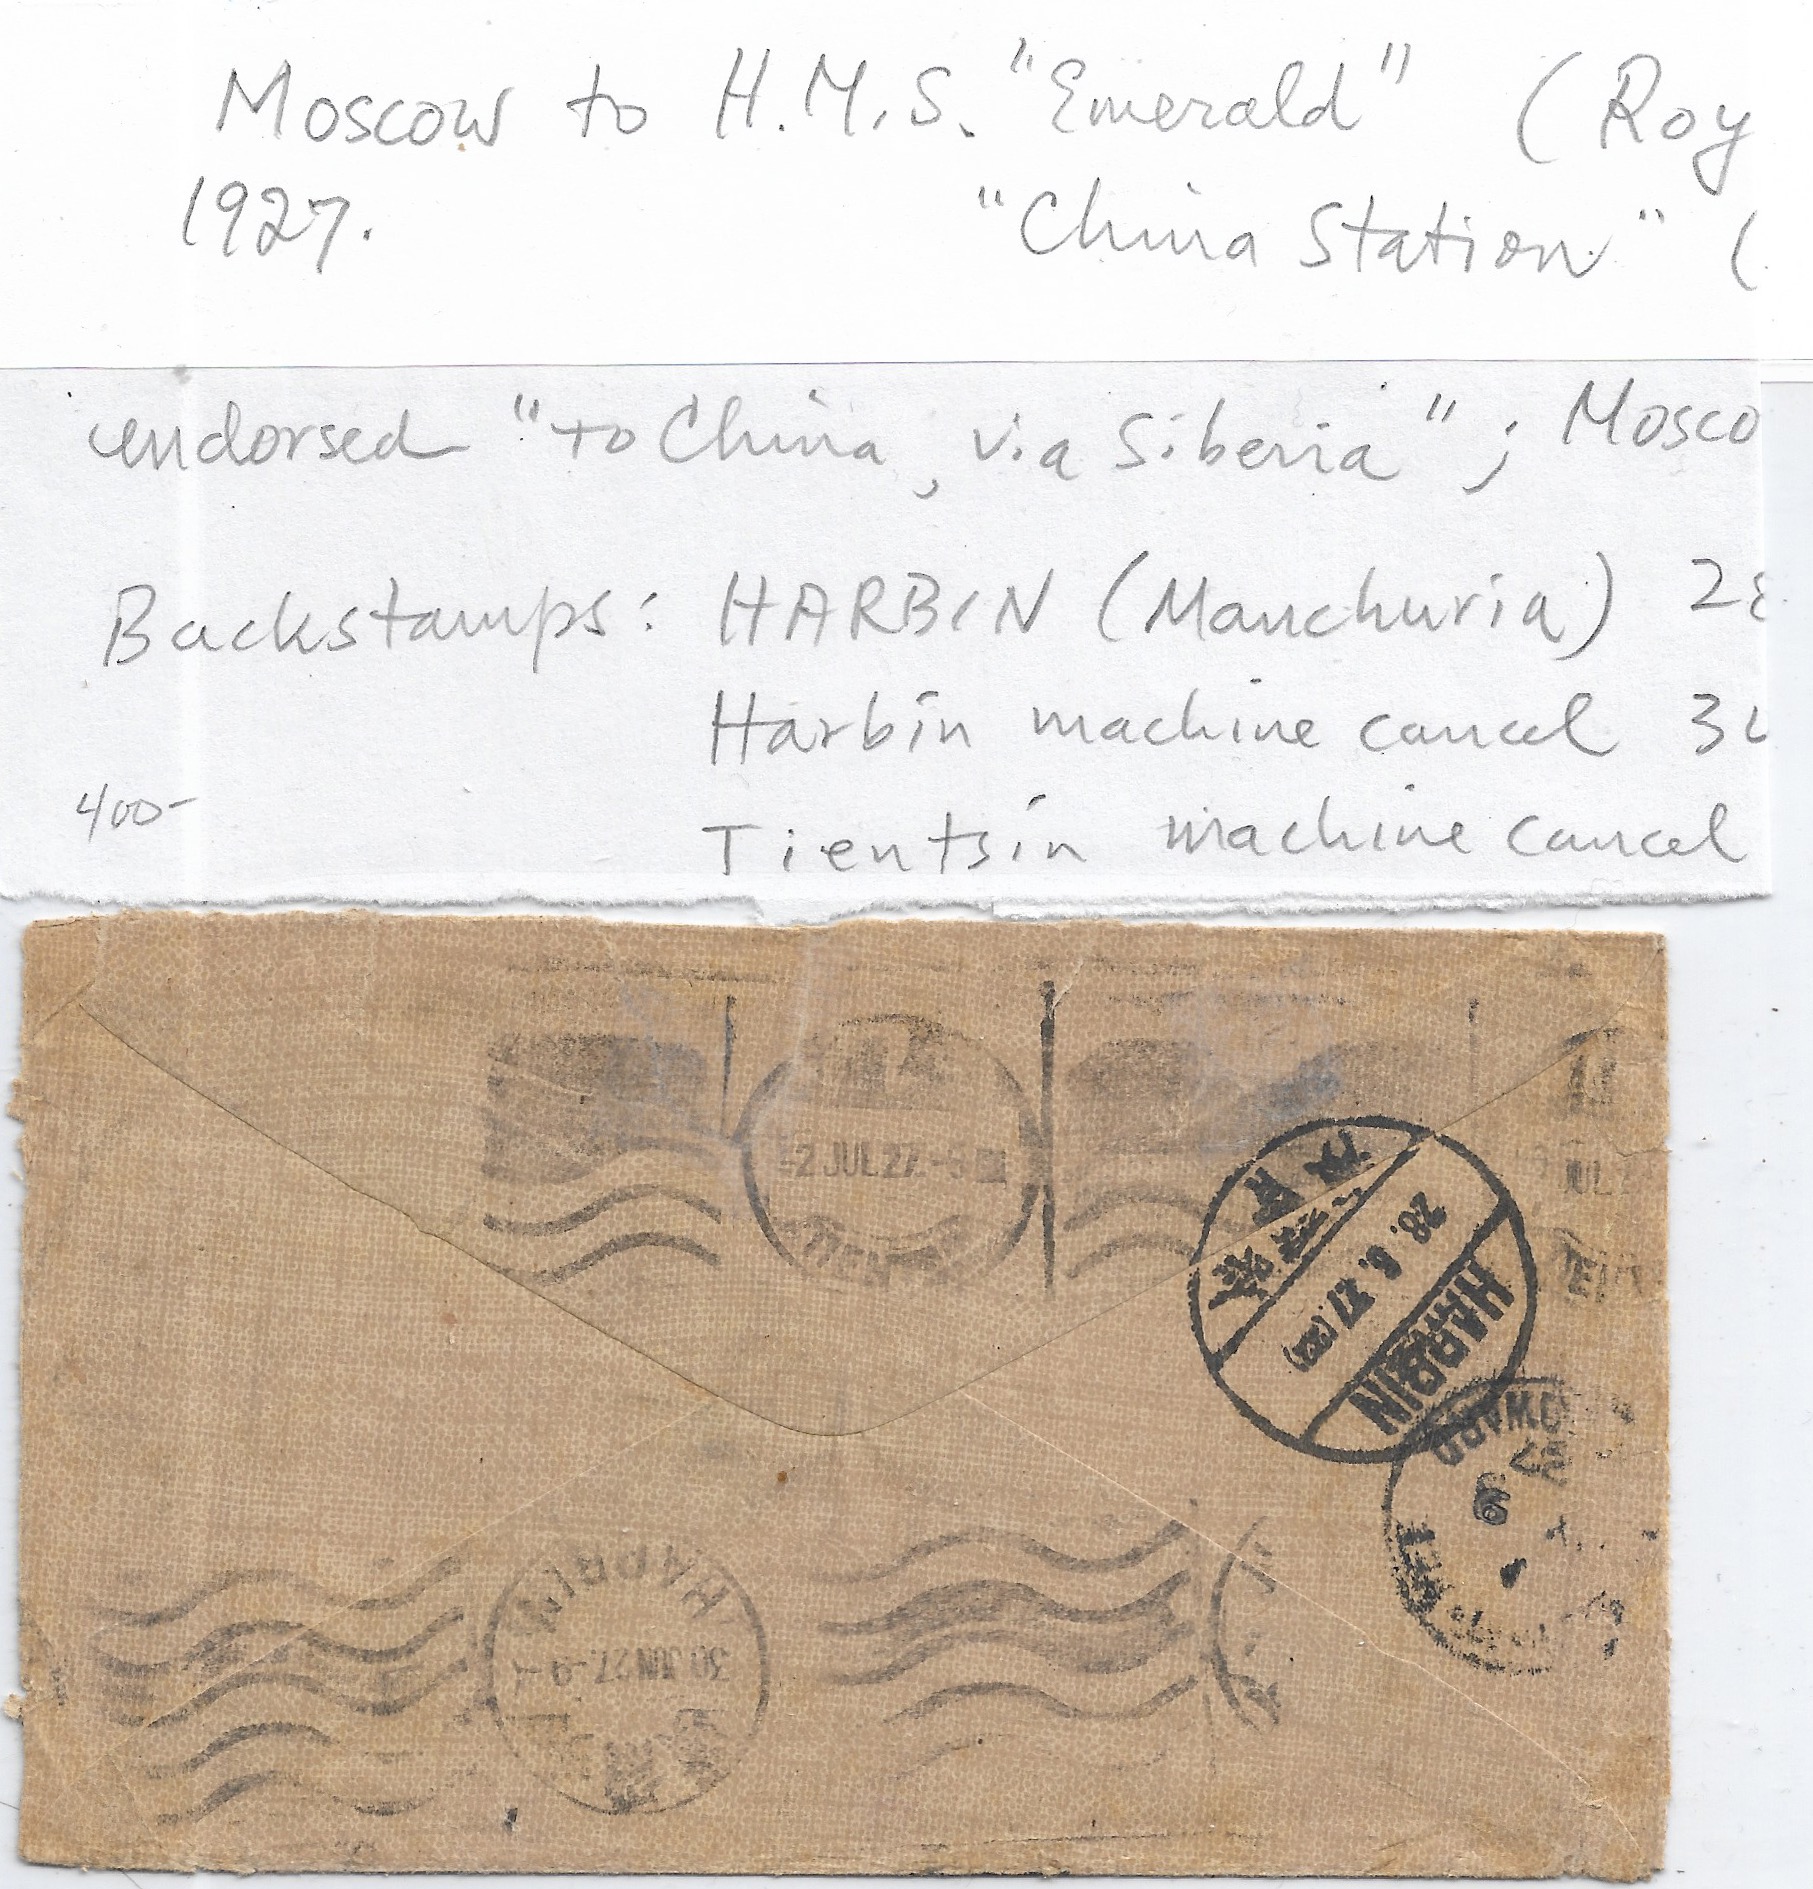 Moscow to H.M.S. "Emerald" (Roy
1927. "China Station" (
endorsed "to China, via Siberia"; Mosco
Backstamps: HARBIN (Manchuria) 28
Harbin machine cancel 30
400- Tientsin machine cancel
-2 JUL 27.-5
TIENTSIN
28. 6. 27.
HARBIN
HARBIN
30 JUN 27.-9-